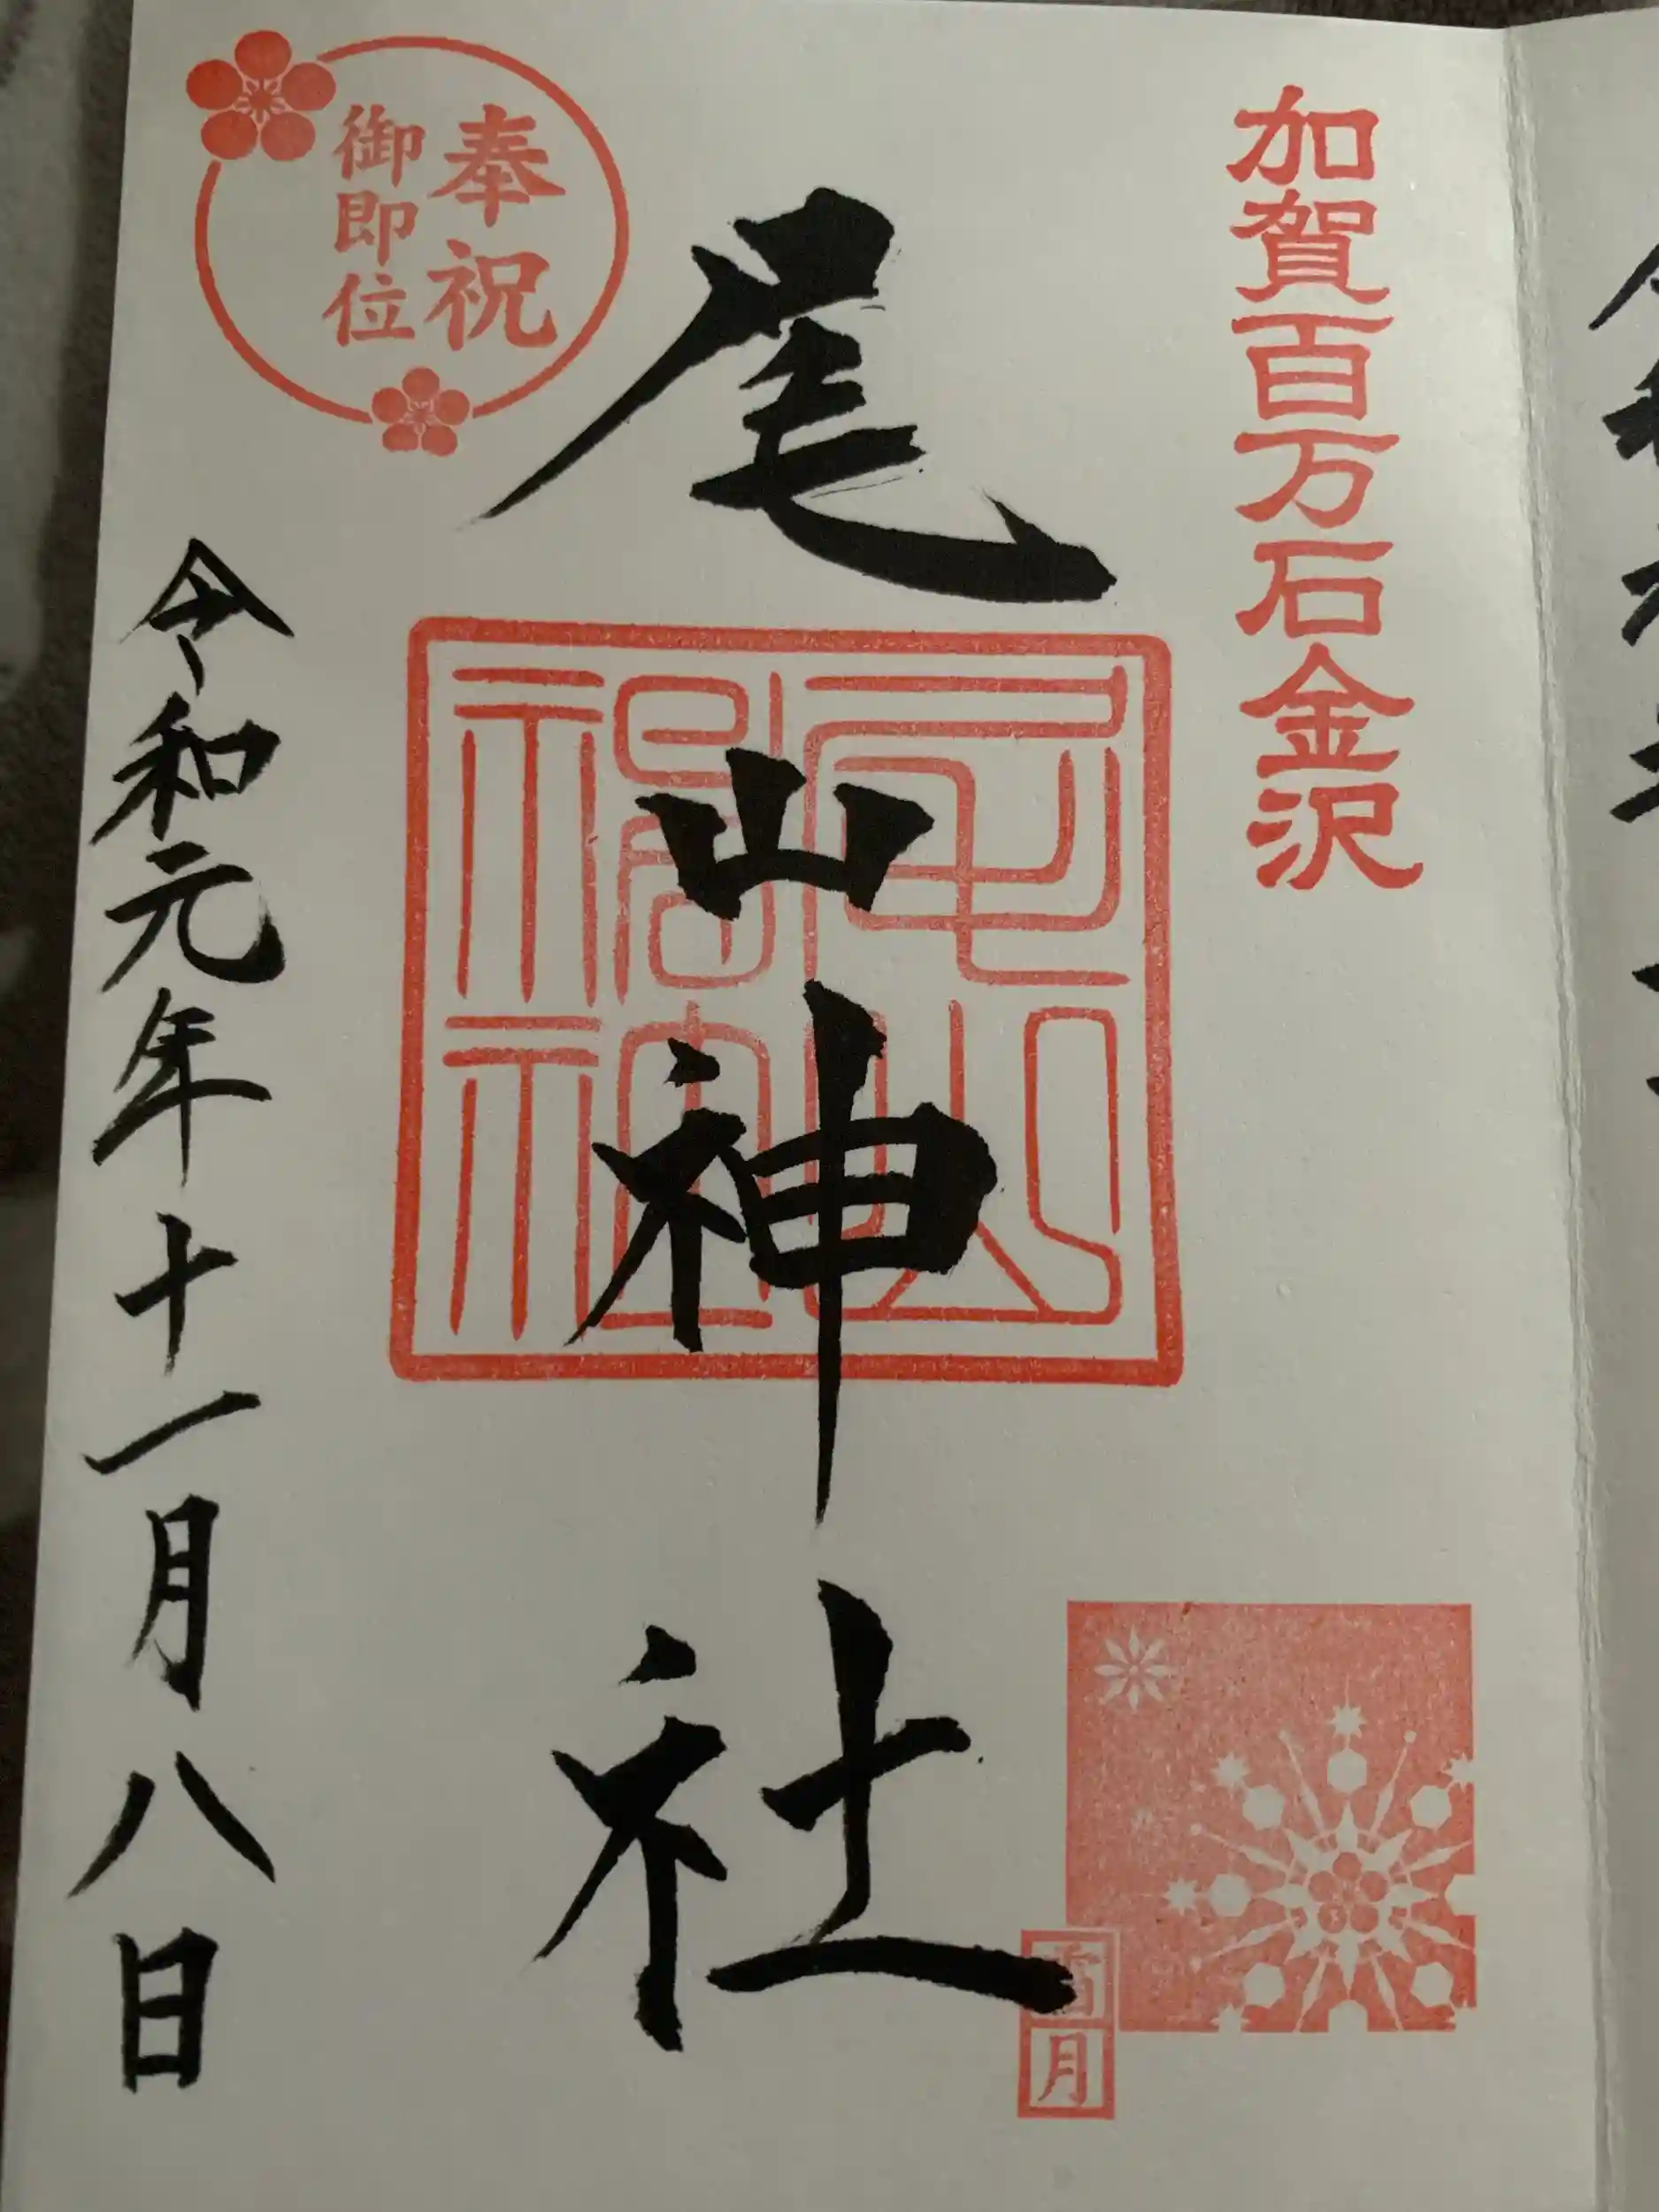 加賀百万石金沢
尾山神社
奉祝
御即位
令和元年十一月八日
霜月